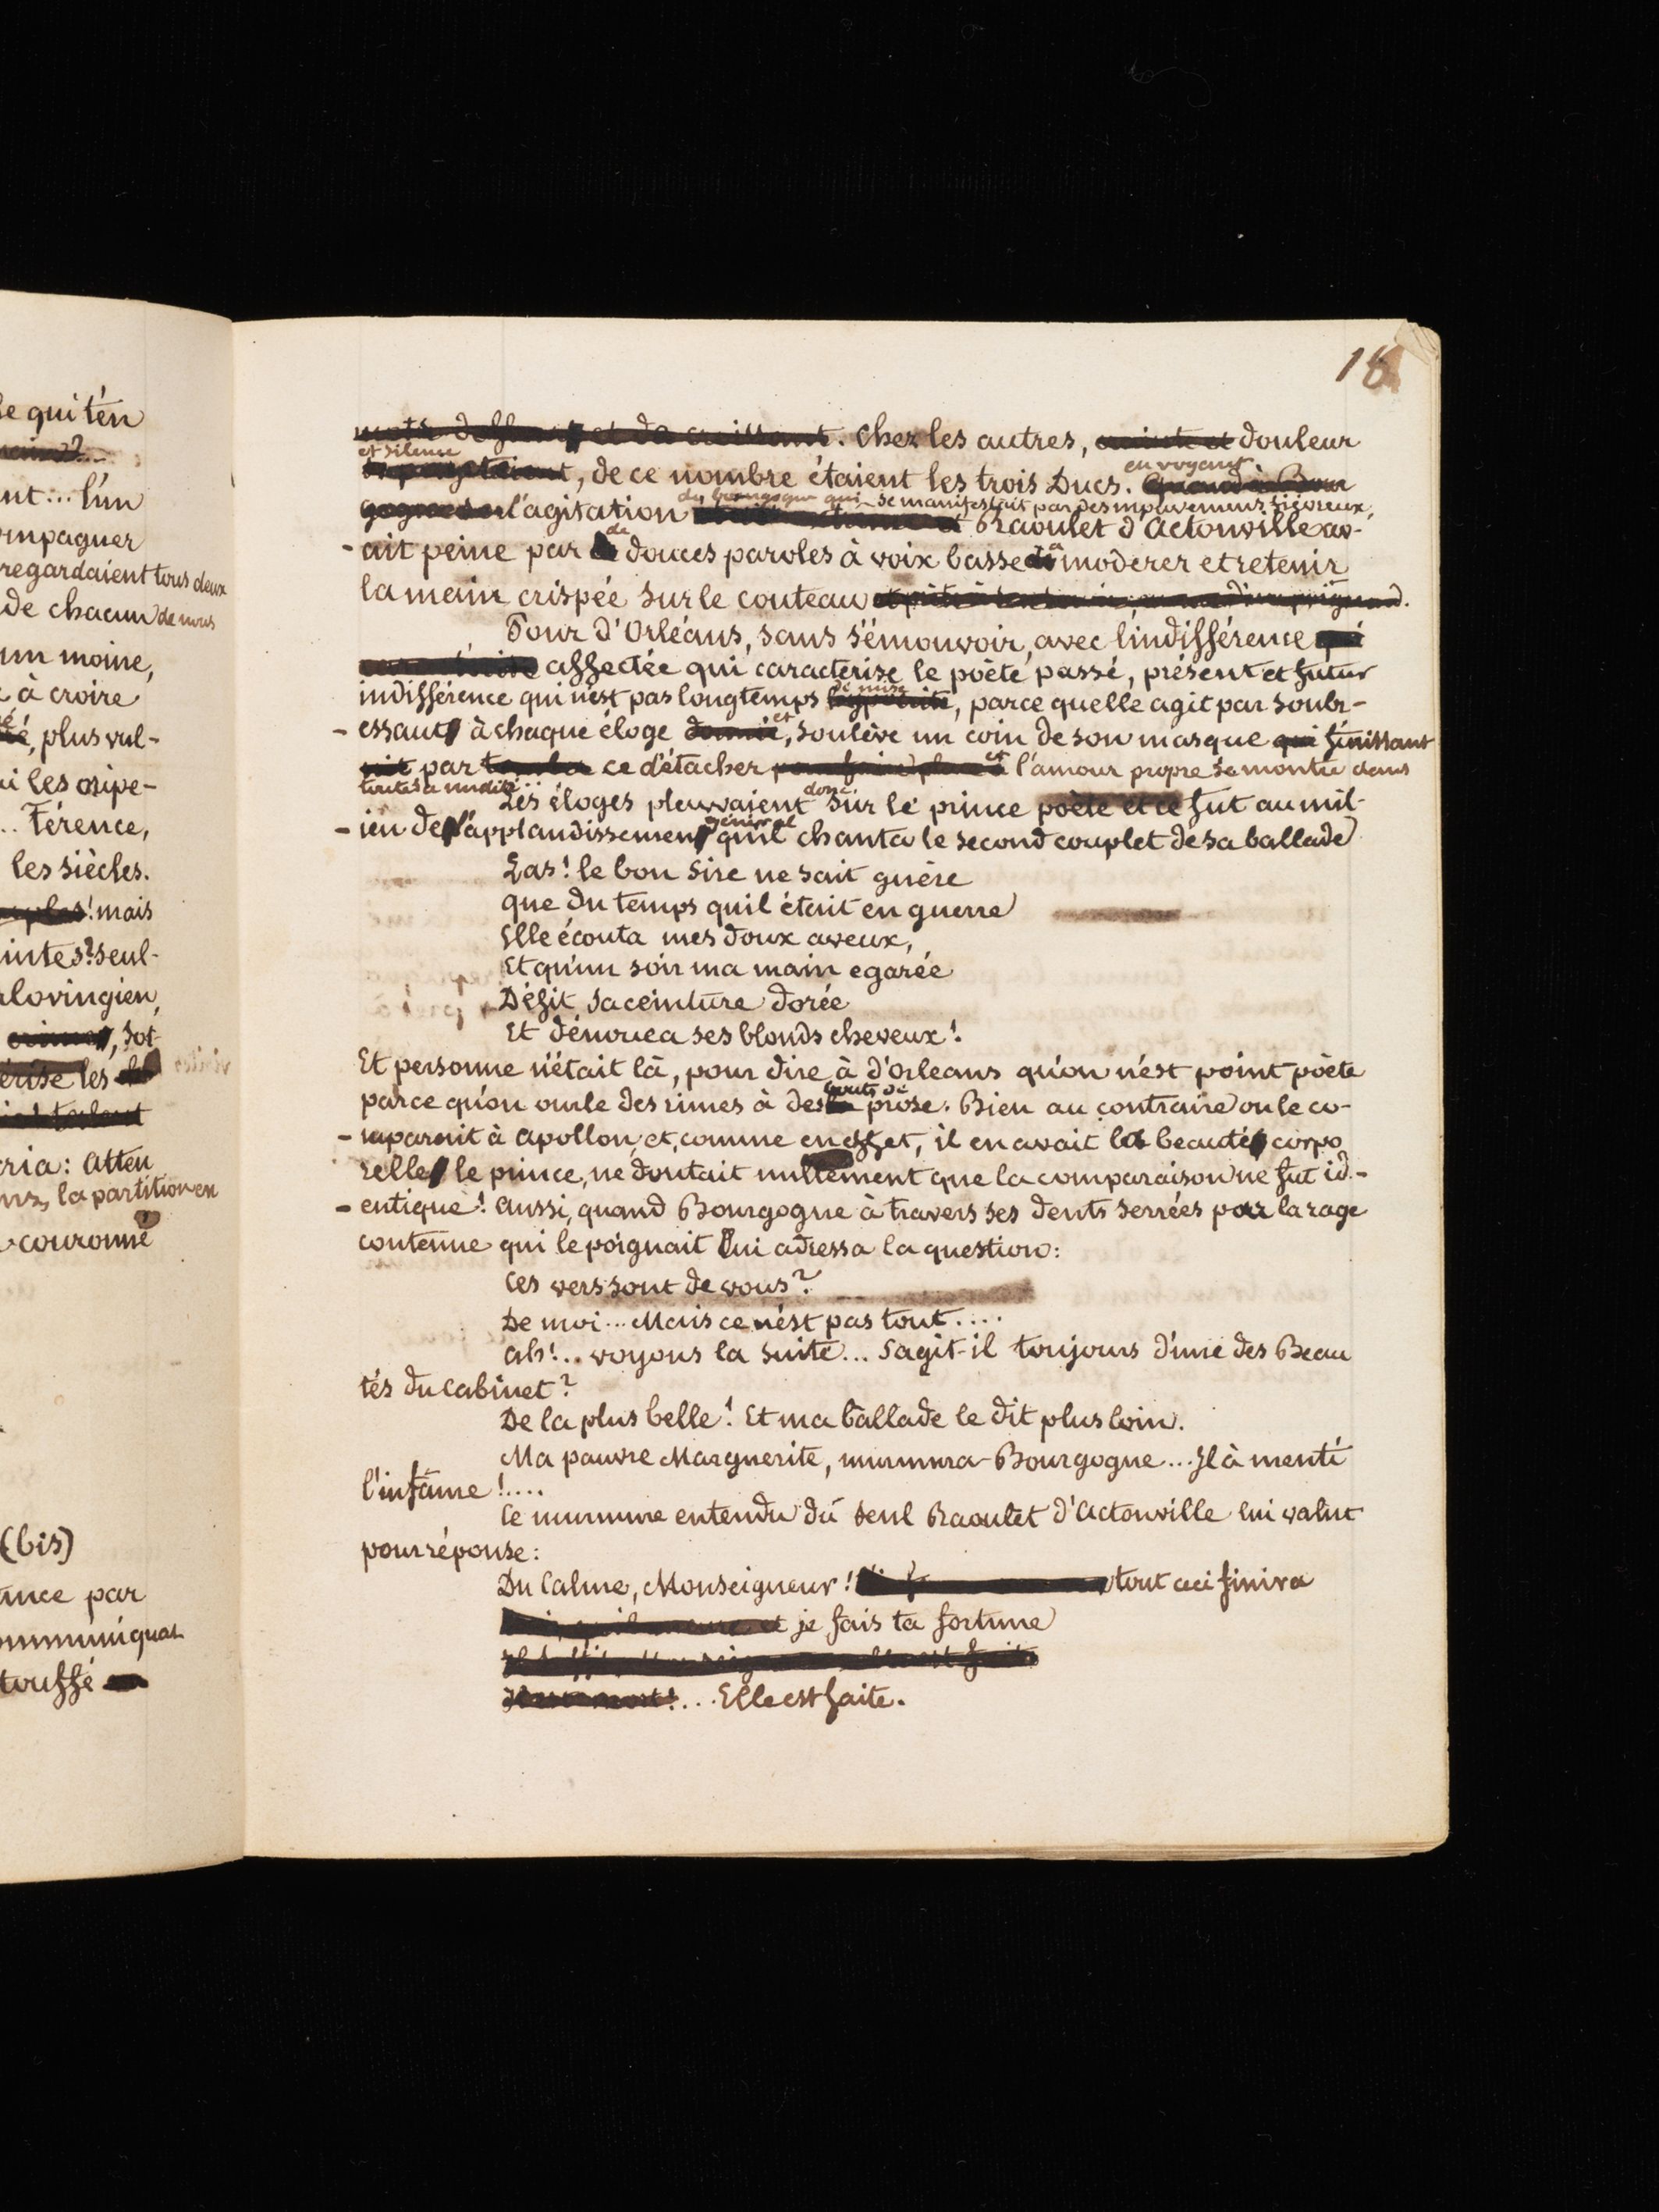 le qui t'en
nt... l'un
ompagner
regardaient tous deux
de chacun de nous
un moine,
à croire
, plus vul-
i les nipe-
.. Térence,
les siècles.
! mais
intes? seul-
rlovingien,
, sot-
érise les
ria: Atten
ms, la partition en
couronné
(bis)
ance par
ommuniquat
touffé
18
et da croissant. Chez les autres, crainte et douleur
et silence
, de ce nombre étaient les trois Ducs. en voyant Quand à Bour
gogne l'agitation du bourgogne qui se manifestait par des mouvements fiévreux,
Raoulet d'Actonville av-
- ait peine par de douces paroles à voix basse à moderer et retenir
la main crispée sur le couteau
Pour d'Orléans, sans s'émouvoir, avec l'indifférence qui
affectée qui caractérise le poète passé, présent et futur
indifférence qui n'est pas longtemps de mise hypocrite, parce quelle agit par soubr-
- essaut à chaque éloge donné, et soulève un coin de son masque qui finissant
par tomber ce détacher pour faire place et l'amour propre se montre dans
toute sa nudité...
Les éloges pleuvaient donc sur le prince poète et ce fut au mil-
- ieu de l'applaudissement général qu'il chanta le second couplet de sa ballade
Las! le bon Sire ne sait guère
que du temps qu'il était en guerre
Elle écouta mes doux aveux,
Et qu'un soir ma main egarée
Défit sa ceinture dorée
Et dénouea ses blonds cheveux!
Et personne n'était là, pour dire à d'Orleans qu'on n'est point poète
parce qu'on ourle des rimes à des bouts de prose. Bien au contraire on le co-
- mparait à Apollon, et, comme en effet, il en avait la beauté corpo
relle le prince, ne doutait nullement que la comparaison ne fut id-
- entique! Aussi, quand Bourgogne à travers ses dents serrées par la rage
contenue qui le poignait lui adressa la question:
Ces vers sont de vous?
De moi... Mais ce n'est pas tout....
Ah!.. voyons la suite... S'agit-il toujours d'une des Beau
tés du Cabinet?
De la plus belle! Et ma ballade le dit plus loin.
Ma pauvre Marguerite, murmura Bourgogne... Il à menti
l'infâme!....
Ce murmure entendu du seul Raoulet d'Actonville lui valut
pour réponse:
Du Calme, Monseigneur! tout ceci finira
je fais ta fortune
... Elle est faite.